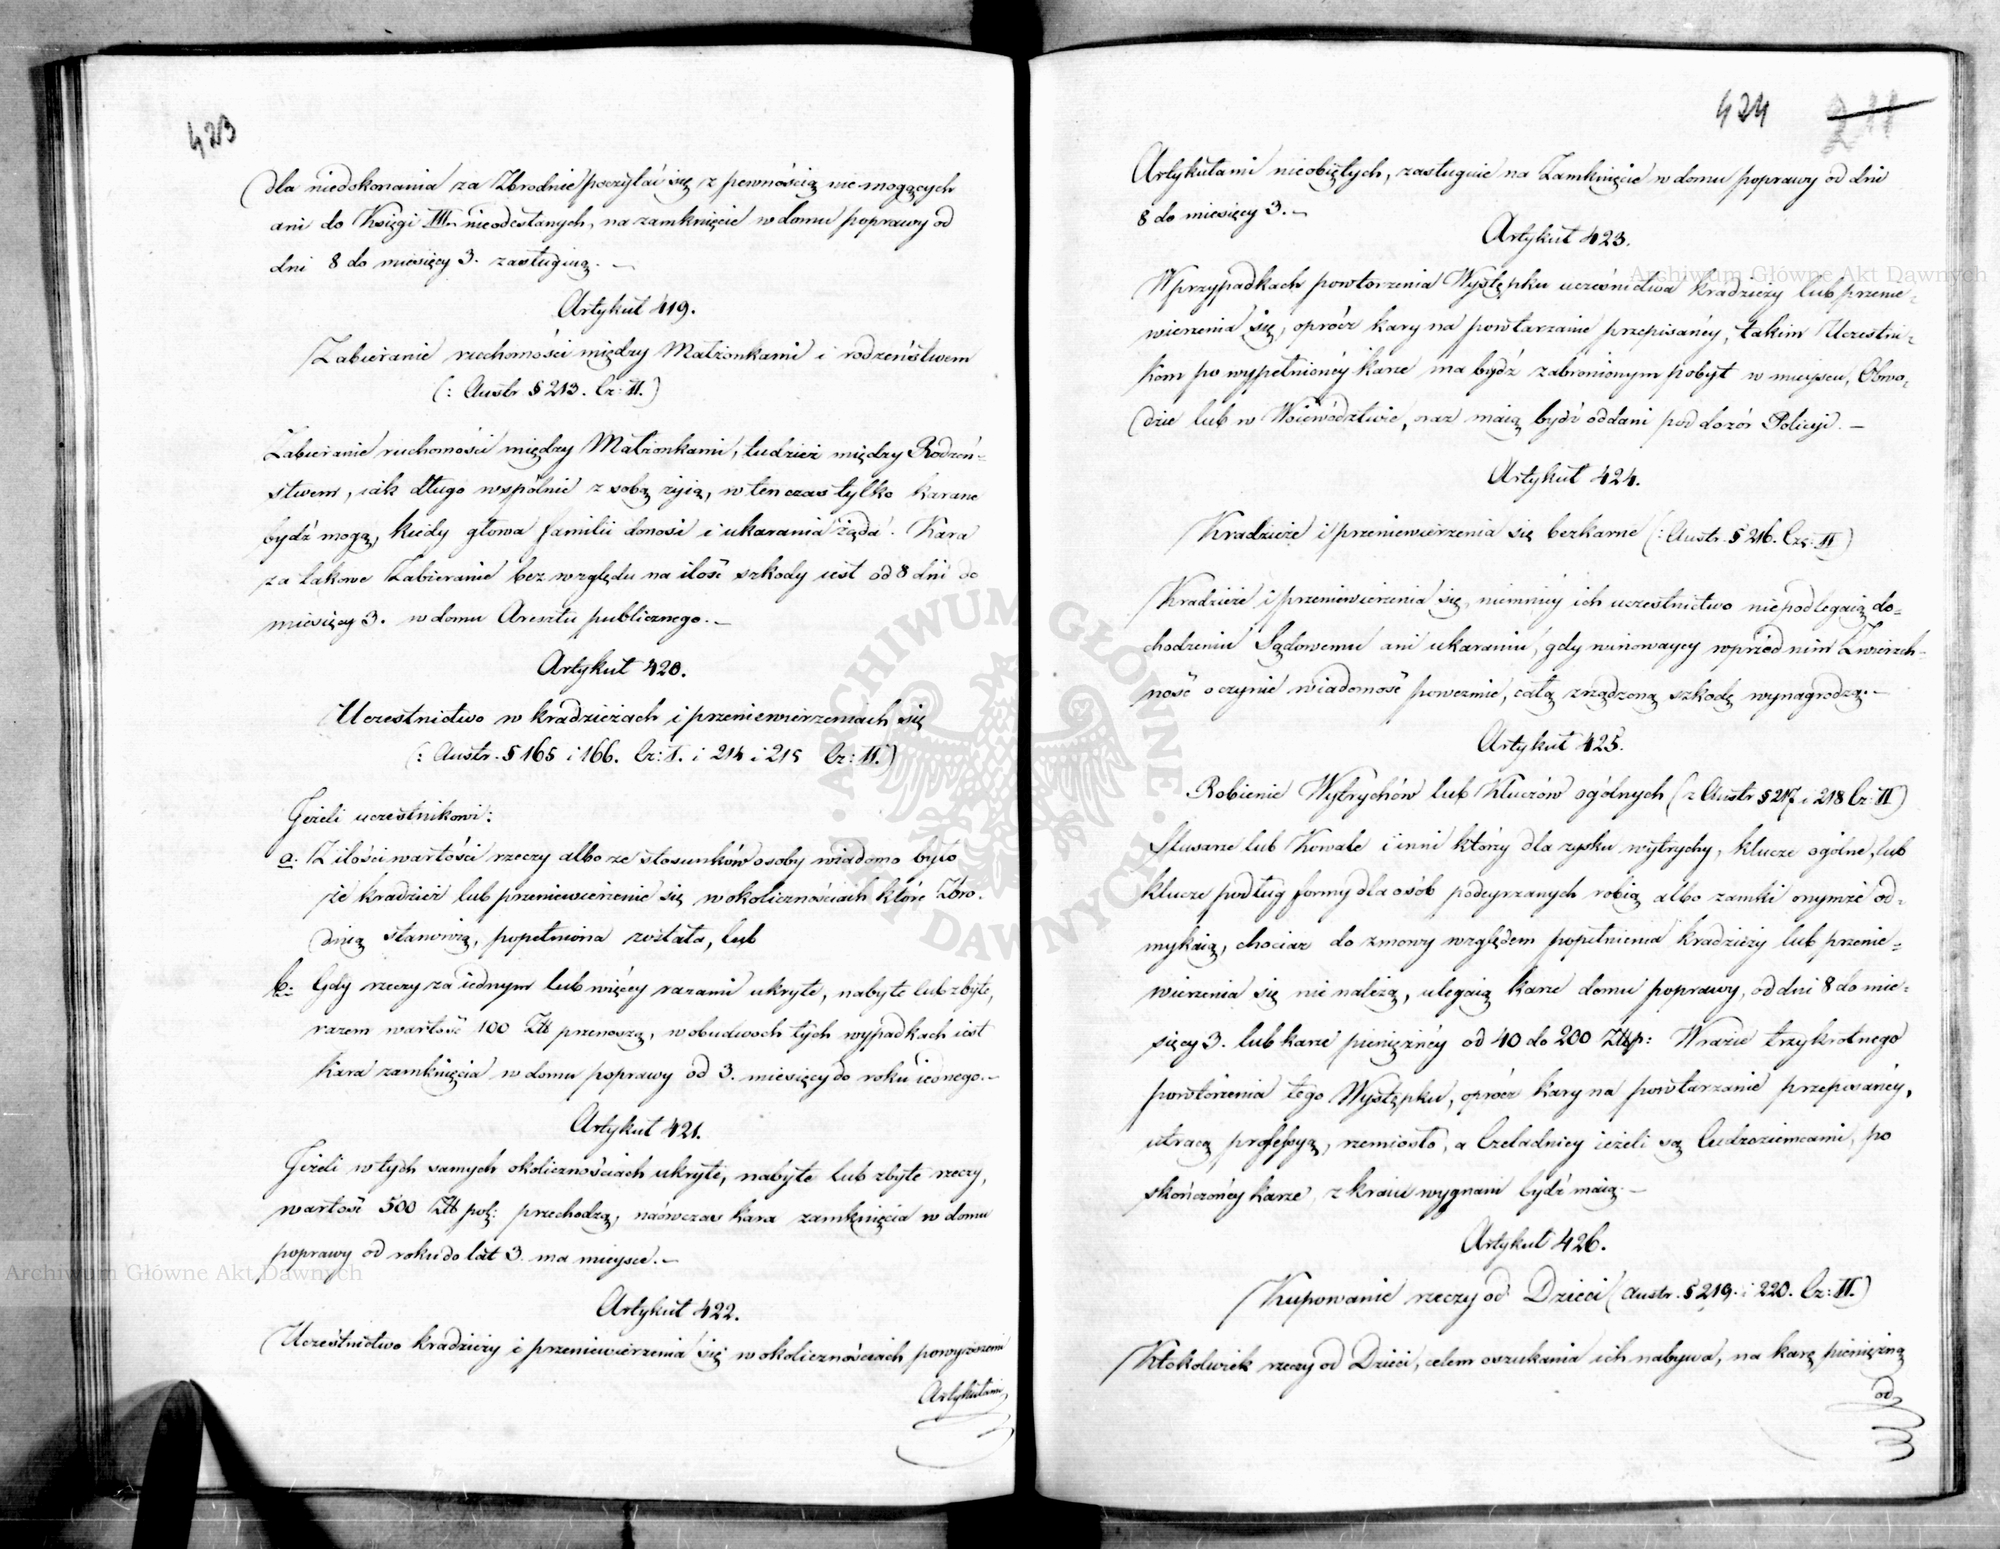 423
dla niedokonania za Zbrodnie poczytać się z pewnością nie mogących
ani do Księgi III. nieodesłanych, na zamknięcie w domu poprawy od
dni 8 do miesięcy 3. zasługują. —
Artykuł 419.
Zabieranie ruchomości między Małżonkami i rodzeństwem
(: Austr § 213. Cz: II.)
Zabieranie ruchomości między Małżonkami, tudzież między Rodzeń-
stwem, iak długo wspólnie z sobą żyią, w ten czas tylko karane
bydź mogą, kiedy głowa familii donosi i ukarania żąda. Kara
za takowe Zabieranie bez względu na ilość szkody iest od 8 dni do
miesięcy 3. w domu Aresztu publicznego. —
Artykuł 420.
Uczestnictwo w kradzieżach i przeniewierzeniach się
(: Austr. § 165 i 166. Cz: I. i 214 i 215 Cz: II.)
Jeżeli uczestnikowi:
a. Z ilości wartości rzeczy albo ze stosunków osoby wiadomo było
że kradzież lub przeniewierzenie się w okolicznościach które Zbro-
dnią stanowią, popełniona została, lub
b. Gdy rzeczy za iednym lub więcey razami ukryte, nabyte lub zbyte,
razem wartość 100 Zł przenoszą, w obudwóch tych wypadkach iest
kara zamknięcia w domu poprawy od 3. miesięcy do roku iednego. —
Artykuł 421.
Jeżeli w tych samych okolicznościach ukryte, nabyte lub zbyte rzeczy,
wartość 500 Zł pol: przechodzą, naówczas kara zamknięcia w domu
poprawy od roku do lat 3. ma mieysce. —
Artykuł 422.
Uczestnictwo kradzieży i przeniewierzenia się w okolicznościach powyższemi
Artykułami
424 211
Artykułami nieobiętych, zasługuie na Zamknięcie w domu poprawy od dni
8 do miesięcy 3. —
Artykuł 423.
W przypadkach powtorzenia Występku uczesnictwa kradzieży lub przenie-
wierzenia się, oprócz kary na powtarzanie przepisanéy, takim Uczestni-
kom po wypełnionéy karze ma bydź zabronionym pobyt w mieyscu, Obwo-
dzie lub w Województwie, oraz maią bydź oddani pod dozór Policyi. —
Artykuł 424.
Kradzieże i przeniewierzenia się bezkarne (: Austr. § 216. Czę: II)
Kradzieże i przeniewierzenia się, niemniéy ich uczestnictwo nie podlegaią do-
chodzeniu Sądowemu ani ukaraniu, gdy winowaycy wprzód nim Zwierzch-
ność o czynie wiadomość poweźmie, całą zrządzoną szkodę wynagrodzą. —
Artykuł 425.
Robienie Wytrychów lub Kluczów ogólnych (z Austr § 217 i 218 Cz: II)
Slusarze lub Kowale i inni którzy dla zysku wytrychy, klucze ogólne, lub
klucze podług formy dla osób podeyrzanych robią albo zamki onymże od-
mykaią, chociaż do zmowy względem popełnienia kradzieży lub przenie-
wierzenia się nie należą, ulegaią karze domu poprawy, od dni 8 do mie-
sięcy 3. lub karze pieniężnéy od 40 do 200 Złtp: W razie trzykrotnego
powtórzenia tego Występku, oprócz kary na powtarzanie przepisanéy,
utracą professyą, rzemiosło, a Czeladnicy ieżeli są Cudzoziemcami, po
skończonéy karze, z kraiu wygnani bydź maią. —
Artykuł 426.
Kupowanie rzeczy od Dzieci (Austr. § 219. i 220. Cz: II.)
Ktokolwiek rzeczy od Dzieci, celem oszukania ich nabywa, na karę pieniężną
od
Archiwum Główne Akt Dawnych
Archiwum Główne Akt Dawnych
ARCHIWUM GŁÓWNE AKT DAWNYCH